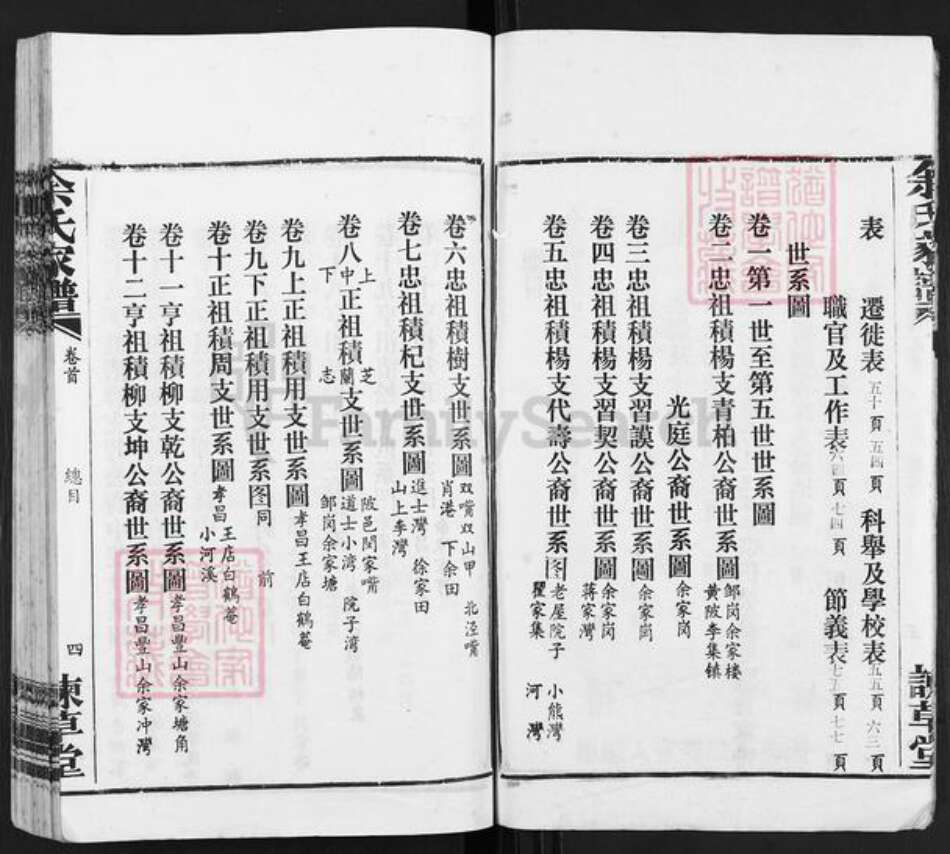 余氏家譜
諫草堂
表
遷徙表五十頁五四頁 科舉及學校表五五頁六三頁
職官及工作表六四頁七四頁 節義表七五頁七七頁
世系圖
卷一第一世至第五世世系圖
卷二忠祖積楊支青柏公裔世系圖邹岗余家楼 黄陂李集镇
光庭公裔世系圖余家岗
卷三忠祖積楊支習謨公裔世系圖余家岗
卷四忠祖積楊支習契公裔世系圖余家岗 蒋家灣
卷五忠祖積楊支代壽公裔世系图老屋院子 小熊灣 翟家集 河灣
卷六忠祖積樹支世系圖双嘴双山甲 北泾嘴 肖港 下余田
卷七忠祖積杞支世系圖進士灣 徐家田 山上李灣
卷八上中下正祖積芝蘭志支世系圖陂邑閆家嘴 道士小湾 院子湾 邹岗余家塘
卷九上正祖積用支世系圖孝昌王店白鶴菴
卷九下正祖積用支世系图同前
卷十正祖積周支世系圖孝昌 王店白鶴菴 小河溪
卷十一亨祖積柳支乾公裔世系圖孝昌豐山余家塘角
卷十二亨祖積柳支坤公裔世系圖孝昌豐山余家冲灣
余氏家譜
卷首
總目
四
諫草堂
FamilySearch